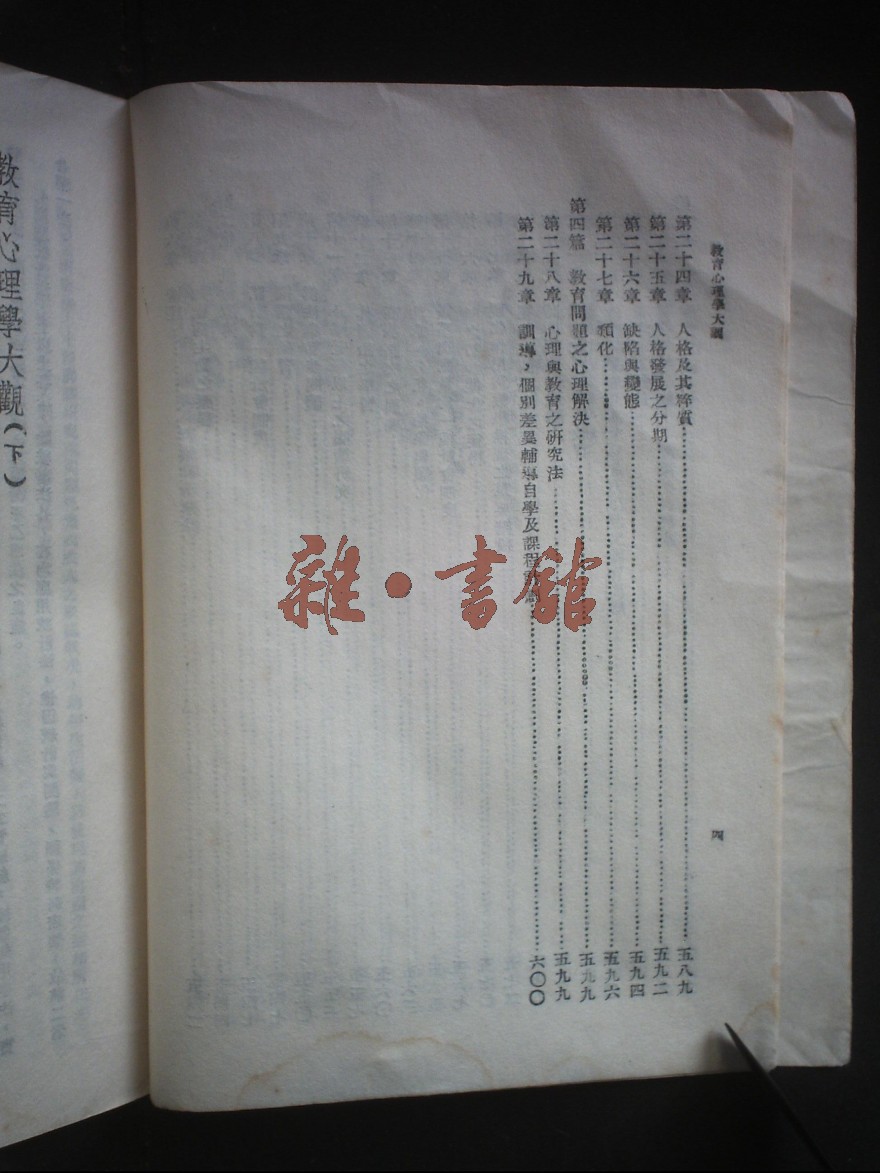 教育心理學大觀
四
第二十四章 人格及其粹質 五八九
第二十五章 人格發展之分期 五九二
第二十六章 缺陷與變態 五九四
第二十七章 類化 五九六
第四篇 教育問題之心理解決 五九九
第二十八章 心理與教育之研究法 五九九
第二十九章 訓導,個別差異輔導自學及課程 六〇〇
雜·書館
教育心理學大觀(下)